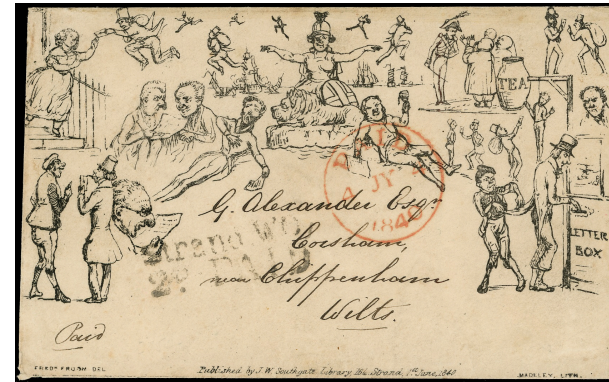 TEA
PAID
4 JY 4
1840
G. Alexander Esqr
Corsham,
near Chippenham
Wilts.
Strand WO
2d PAID
LETTER
BOX
Paid
FREDK. FRUSH DEL
Published by J. W. Southgate, Library, 164, Strand, 1st June, 1840
MADELEY, LITH.